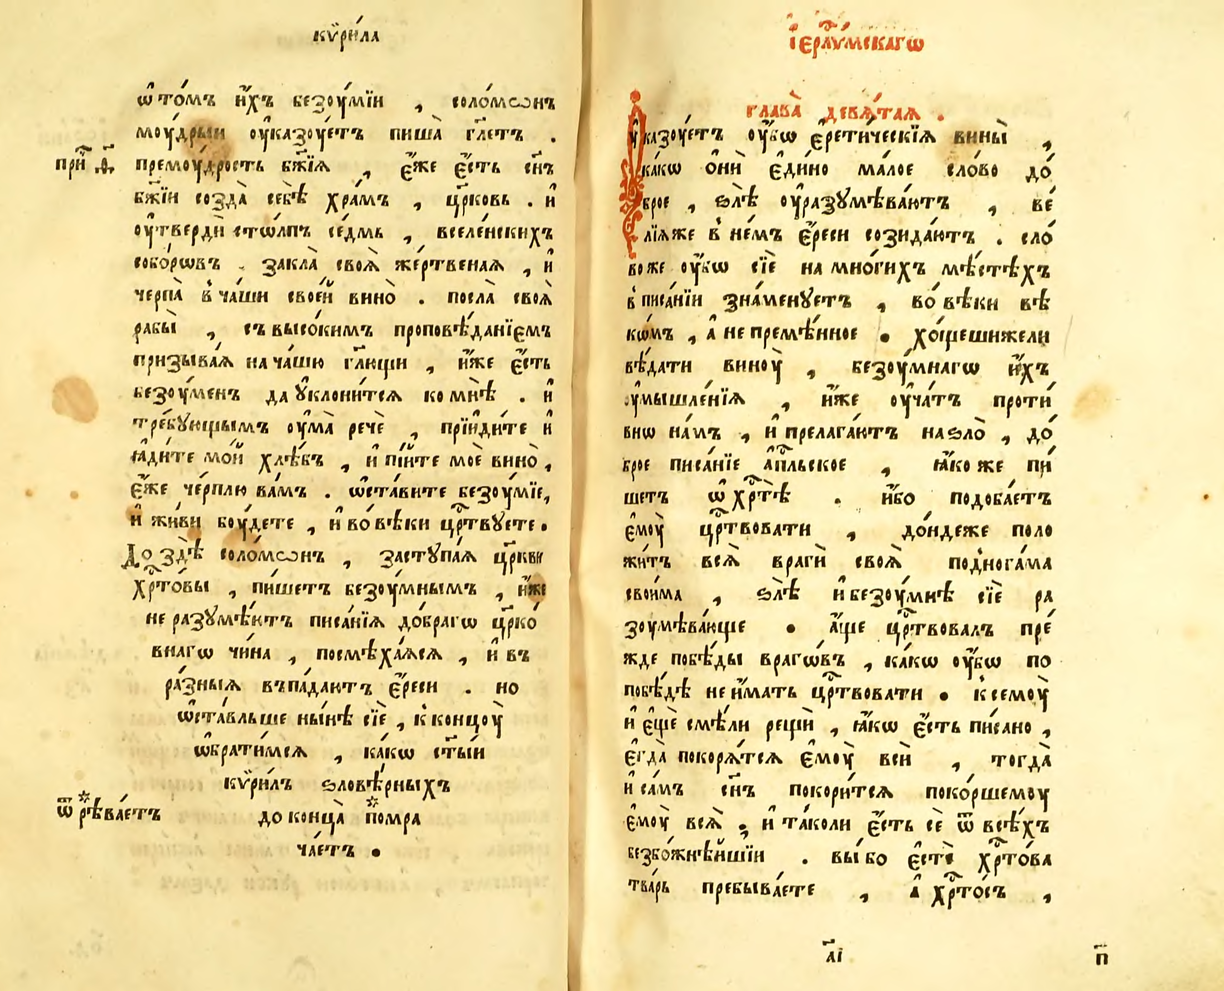 кѷри́ла
ѿто́мъ и҆́хъ безѹ́мїи , соломѡнъ
мѹ́дрыи ѹ҆казѹ́етъ пиша̀ гл҃етъ .
при҃ ѳ҃ премѹ́дрость бж҃їѧ , є҆́же є҆́сть сн҃ъ
бж҃їи созда̀ себѣ̀ хра́мъ , цр҃ковь . и҆
ѹ҆твердѝ стѡ́лпъ се́дмь , вселе́нскихъ
собо́рѡвъ . закла̀ своѧ̀ же́ртвенаѧ , и҆
черпа̀ в̾ча́ши свое́й вино̀ . посла̀ своѧ̀
рабы̀ , съвысо́кимъ проповѣ́данїемъ
призыва́ѧ начашю гл҃ющи , и҆́же є҆́сть
безѹ́менъ даꙋклони́тсѧ комнѣ̀ . и҆
тре́бꙋющымъ ѹ҆ма̀ речѐ , прїиди́те и҆
ꙗ҆ди́те мо́й хлѣ́бъ , и҆пі́йте моѐ вино̀ ,
є҆́же че́рплю ва́мъ . ѡ҆ста́вите безѹ́мїе,
и҆ жи́ви бѹ́дете , и҆во́вѣки црⷭ҇твꙋете .
До здѣ̀ соло́мѡнъ , застꙋпа́ѧ цр҃кви
хрⷭ҇то́вы , пи́шетъ безѹ́мнымъ , и҆́же
не разꙋмѣ́ютъ писа́нїѧ до́браго цр҃ко́
внагѡ чи́на , посмѣха́ѧсѧ , и҆ въ
ра́зныѧ въпа́даютъ є҆́реси . но
ѡ҆ста́вльше ны́нѣ сїѐ , к̾концѹ̀
ѡ҆брати́мсѧ , ка́кѡ ст҃ы́и
кѷри́лъ ѕловѣ́рныхъ
ѿ *рѣва́етъ доконца̀ *помра
ча́етъ .
і҆ерⷭ҇ли́мскагѡ
глава̀ девѧ́таѧ .
ѹ҆казѹ́етъ ѹ҆́бѡ є҆рети́ческїѧ вины̀ ,
ка́кѡ ѻ҆нѝ є҆ди́но ма́лое сло́во до́
брое , ѕлѣ̀ ѹ҆разꙋмѣва́ютъ , ве́
лїѧже в̾не́мъ є҆́реси созида́ютъ . сло́
воже ѹ҆́бѡ сїѐ намно́гихъ мѣ́стѣхъ
в̾писа́нїи зна́менꙋетъ , во́вѣки вѣ
кѡ́мъ , а҆ непремѣ́нное . хо́щешижели
вѣ́дати винѹ̀ , безѹ́мнагѡ и҆́хъ
ꙋмышле́нїѧ , и҆́же ѹ҆ча́тъ проти́
внѡ на́мъ , и҆прелага́ютъ наѕло̀ , до́
брое писа́нїе а҆пⷭ҇льское , ꙗ҆́коже пи́
шетъ ѡ҆хрⷭ҇тѣ̀ . и҆́бо подоба́етъ
є҆мѹ̀ црⷭ҇твовати , до́ндеже поло
жи́тъ всѧ̀ врагѝ своѧ̀ под̾нога́ма
свои́ма , ѕлѣ̀ и҆безѹ́мнѣ сїѐ ра
зѹмѣва́юще . а҆́ще црⷭ҇твовалъ пре́
жде побѣ́ды враго́въ , ка́кѡ ѹ҆́бѡ по
побѣ́дѣ неи҆́мать црⷭ҇твовати . к̾семѹ̀
и҆ є҆щѐ смѣ́ли рещѝ , ꙗ҆́кѡ є҆́сть писано ,
є҆гда̀ покорѧ́тсѧ є҆мѹ̀ всѝ , тогда̀
и҆ са́мъ сн҃ъ покори́тсѧ поко́ршемѹ
є҆мѹ̀ всѧ̀ . и҆ та́коли є҆́сть сѐ ѿ всѣ́хъ
безбо́жнѣйшїи . вы́бо є҆стѐ хрⷭ҇то́ва
тва́рь пребыва́ете , а҆ хрⷭ҇то́съ ,
а҃і п҃